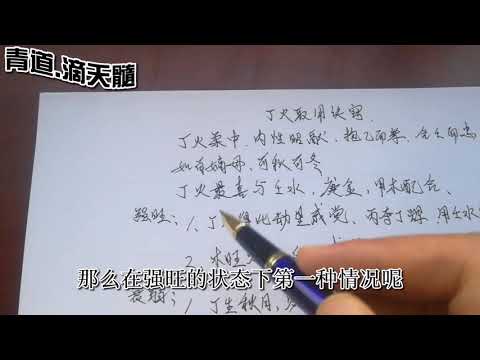 青道.滴天髓
丁火取用诀窍
丁火柔中，内性昭融，抱乙而孝，合壬而忠
如有嫡母，可秋可冬
丁火最喜与壬水，庚金，甲木配合、
强旺：1、丁 比劫生成党、丙夺丁辉、用壬水
2、木旺
那么在强旺的状态下第一种情况呢
衰弱：1、丁生秋月，